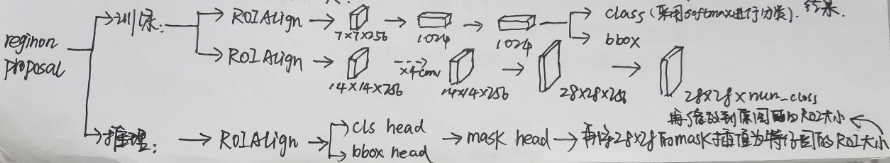 训练: → ROIAlign → 7×7×256 → 1024 → 1024 → class (采用softmax进行分类). 结果.
bbox
reginon proposal
→ ROIAlign → 14×14×256 ×4conv 14×14×256 → 28×28×256 → 28×28×num_class
再缩放到原图的ROI大小
推理: → ROIAlign → cls head → mask head → 再将28×28的mask插值为等同的ROI大小
bbox head